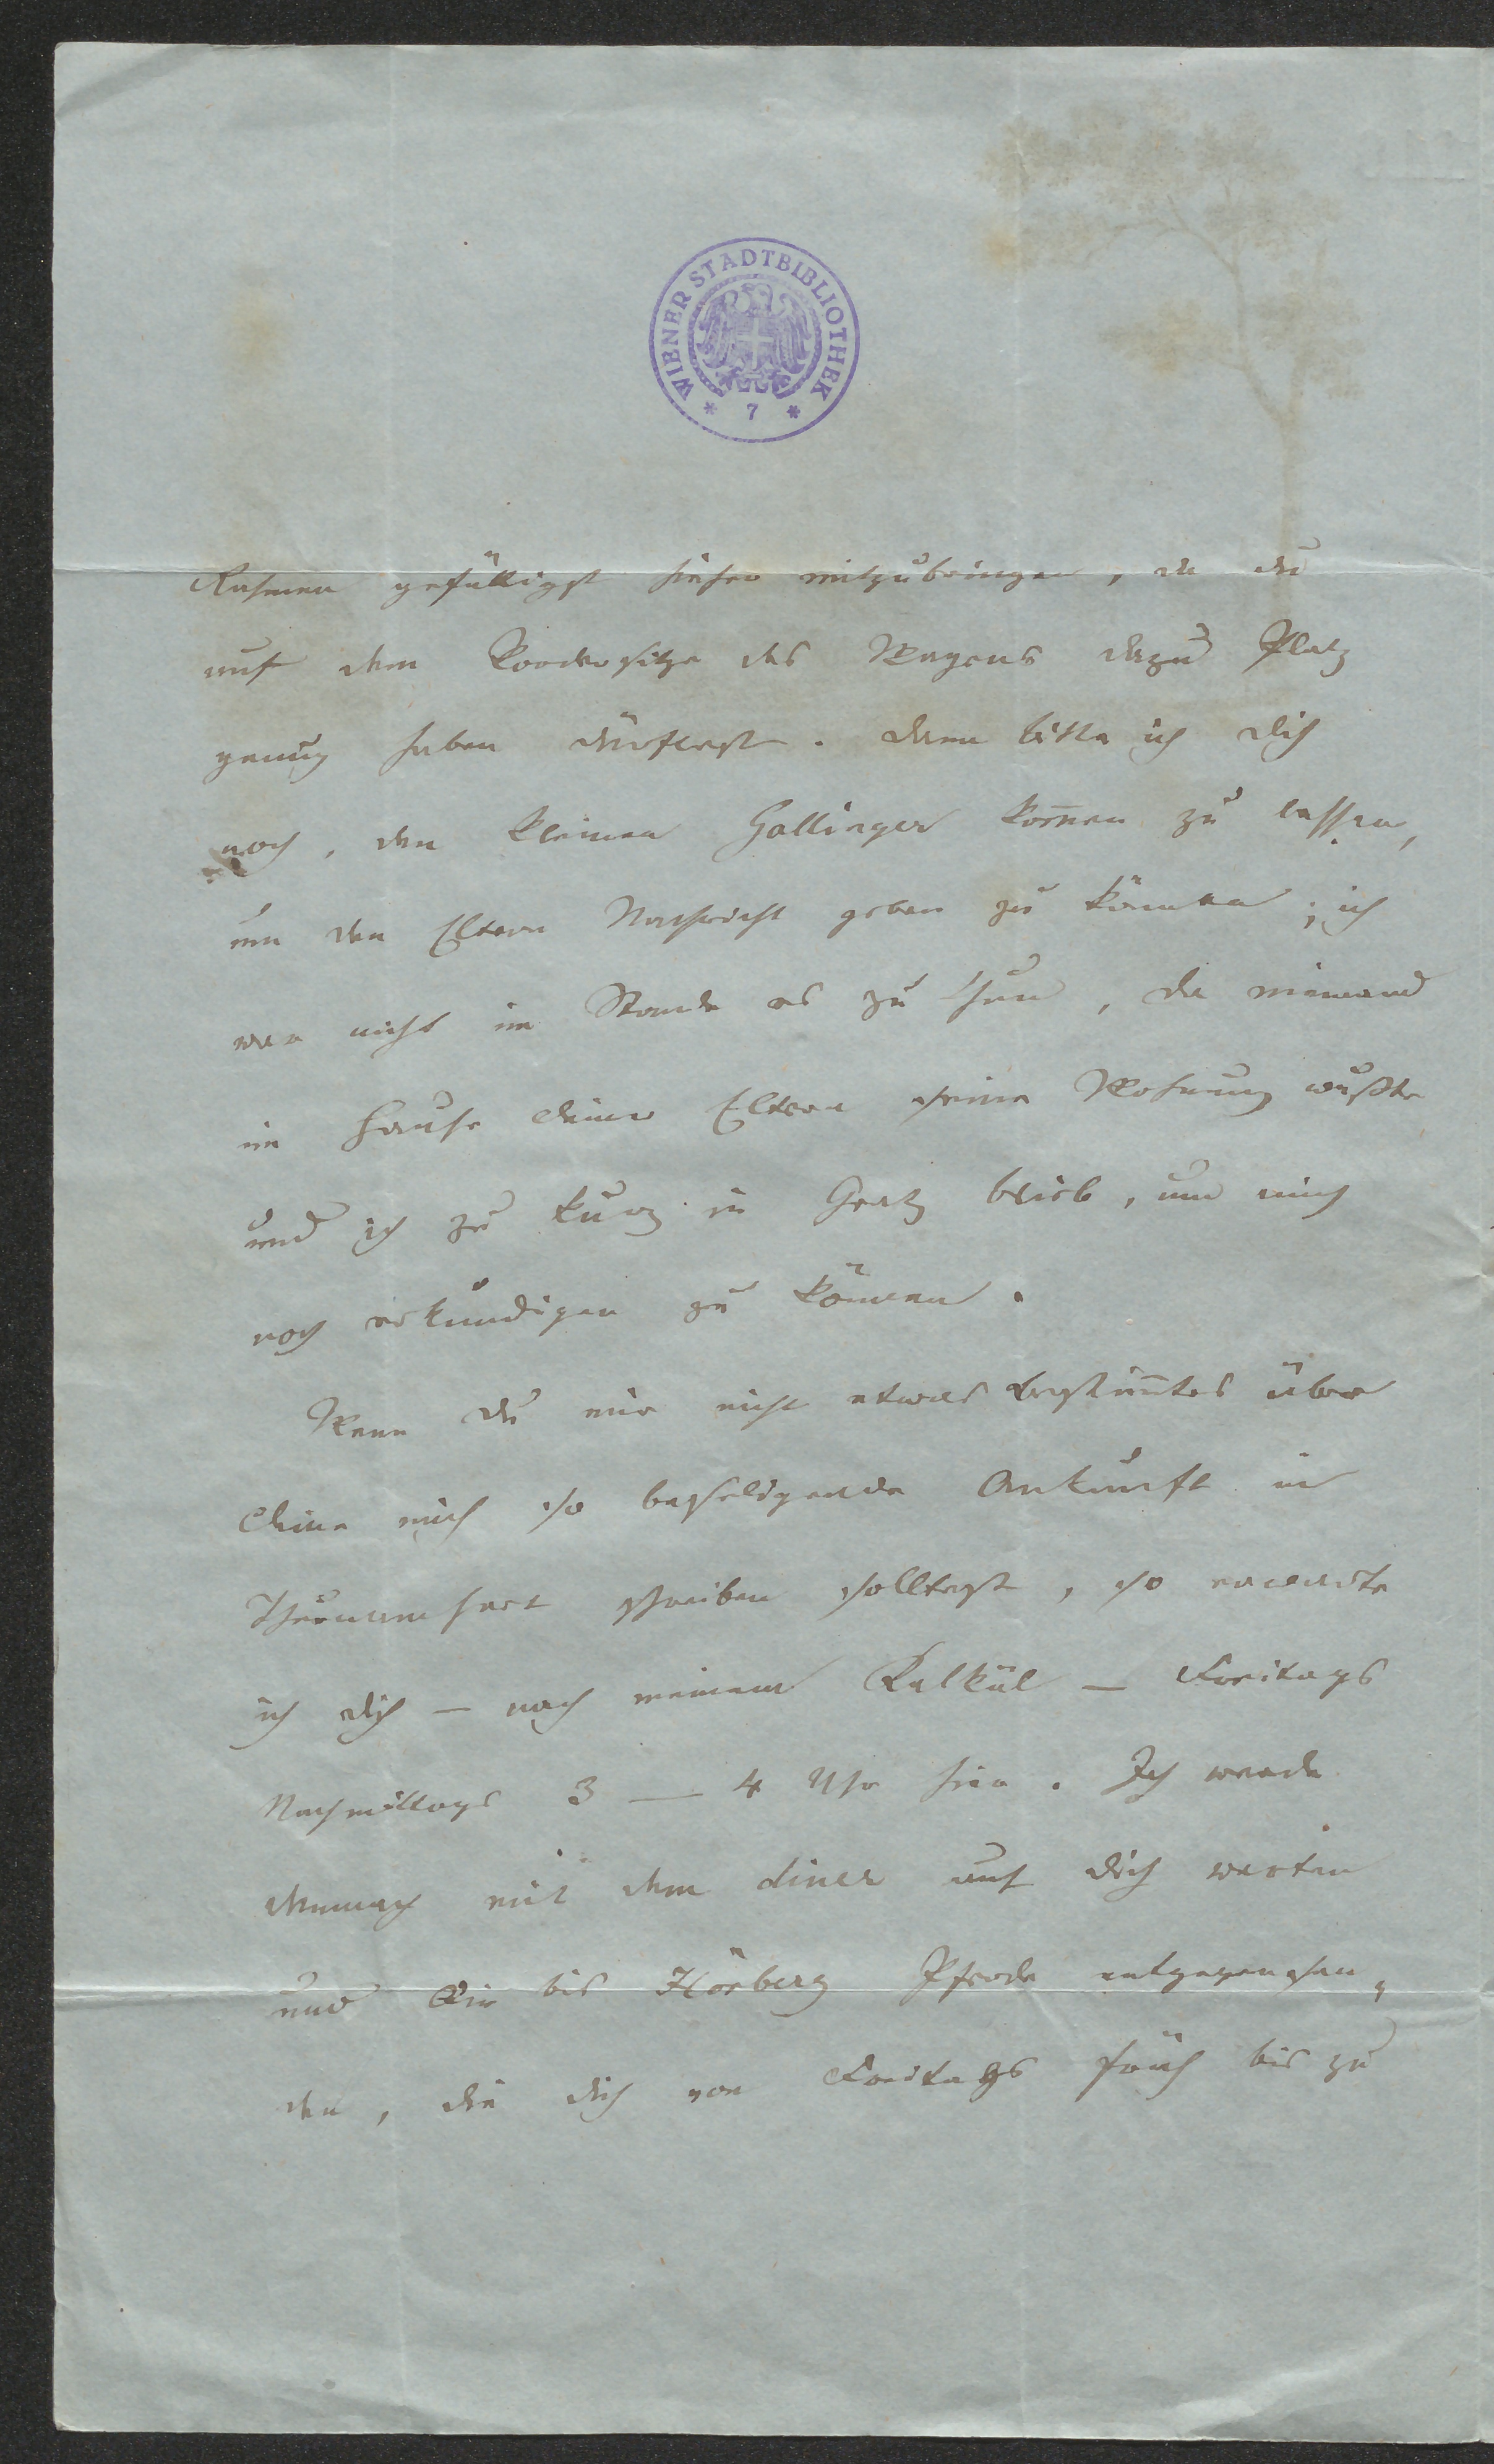 WIENER STADTBIBLIOTHEK
* 7 *
Rahmen gefälligst hieher mitzubringen, da du
auf dem Vordersitze des Wagens dazu Platz
genug haben dürftest. Dann bitte ich dich
noch, den kleinen Hollinger kom̄en zu lassen,
um den Eltern Nachricht geben zu können; ich
war nicht im Stande es zu thun, da niemand
im Hause deiner Eltern seine Wohnung wußte
und ich zu kurz in Gratz blieb, um mich
noch erkundigen zu können.
Wenn du mir nicht etwas bestim̄tes über
deine mich so beseligende Ankunft in
Thurnamhart schreiben solltest, so erwarte
ich dich – nach meinem Kalkül – Freitags
Nachmittags 3 – 4 Uhr hier. Ich werde
demnach mit dem diner auf dich warten
und dir bis Hörberg Pferde entgegensen„
den, die dich von Freitags früh bis zu